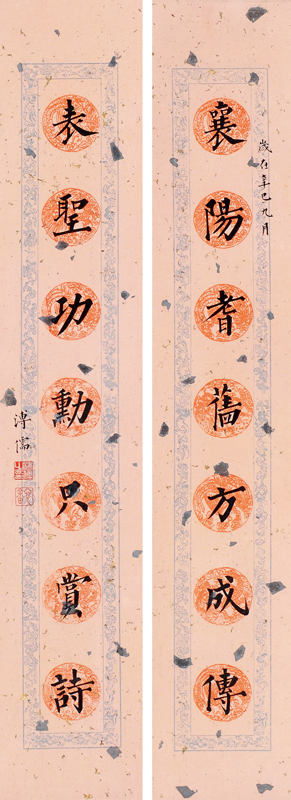 歲在辛巳九月
襄陽耆舊方成傳
表聖功勳只賞詩
溥儒